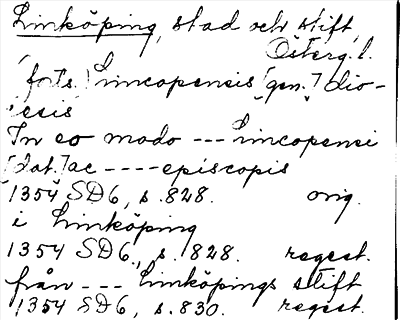 Linköping, stad och stift,
Österg. l.
(forts.) Lincopensis [gen.] dio-
cesis
In eo modo --- Lincopensi
[dat.] ac ---- episcopis
1354 SD6, s. 828. orig.
i Linköping
1354 SD6, s. 828. regest.
från --- Linköpings stift
1354 SD6, s. 830. regest.